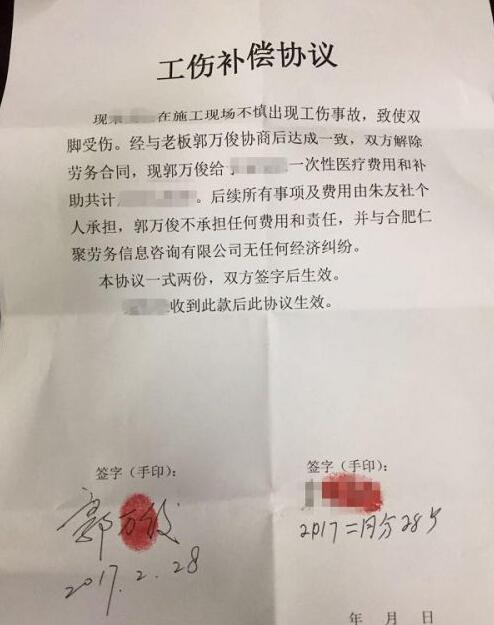 工伤补偿协议
现 在施工现场不慎出现工伤事故，致使双
脚受伤。经与老板郭万俊协商后达成一致，双方解除
劳务合同，现郭万俊给 一次性医疗费用和补
助共计 。后续所有事项及费用由朱友社个
人承担，郭万俊不承担任何费用和责任，并与合肥仁
聚劳务信息咨询有限公司无任何经济纠纷。
本协议一式两份，双方签字后生效。
收到此款后此协议生效。
签字（手印）：
签字（手印）：
郭万俊
2017二月分28号
2017.2.28
年 月 日